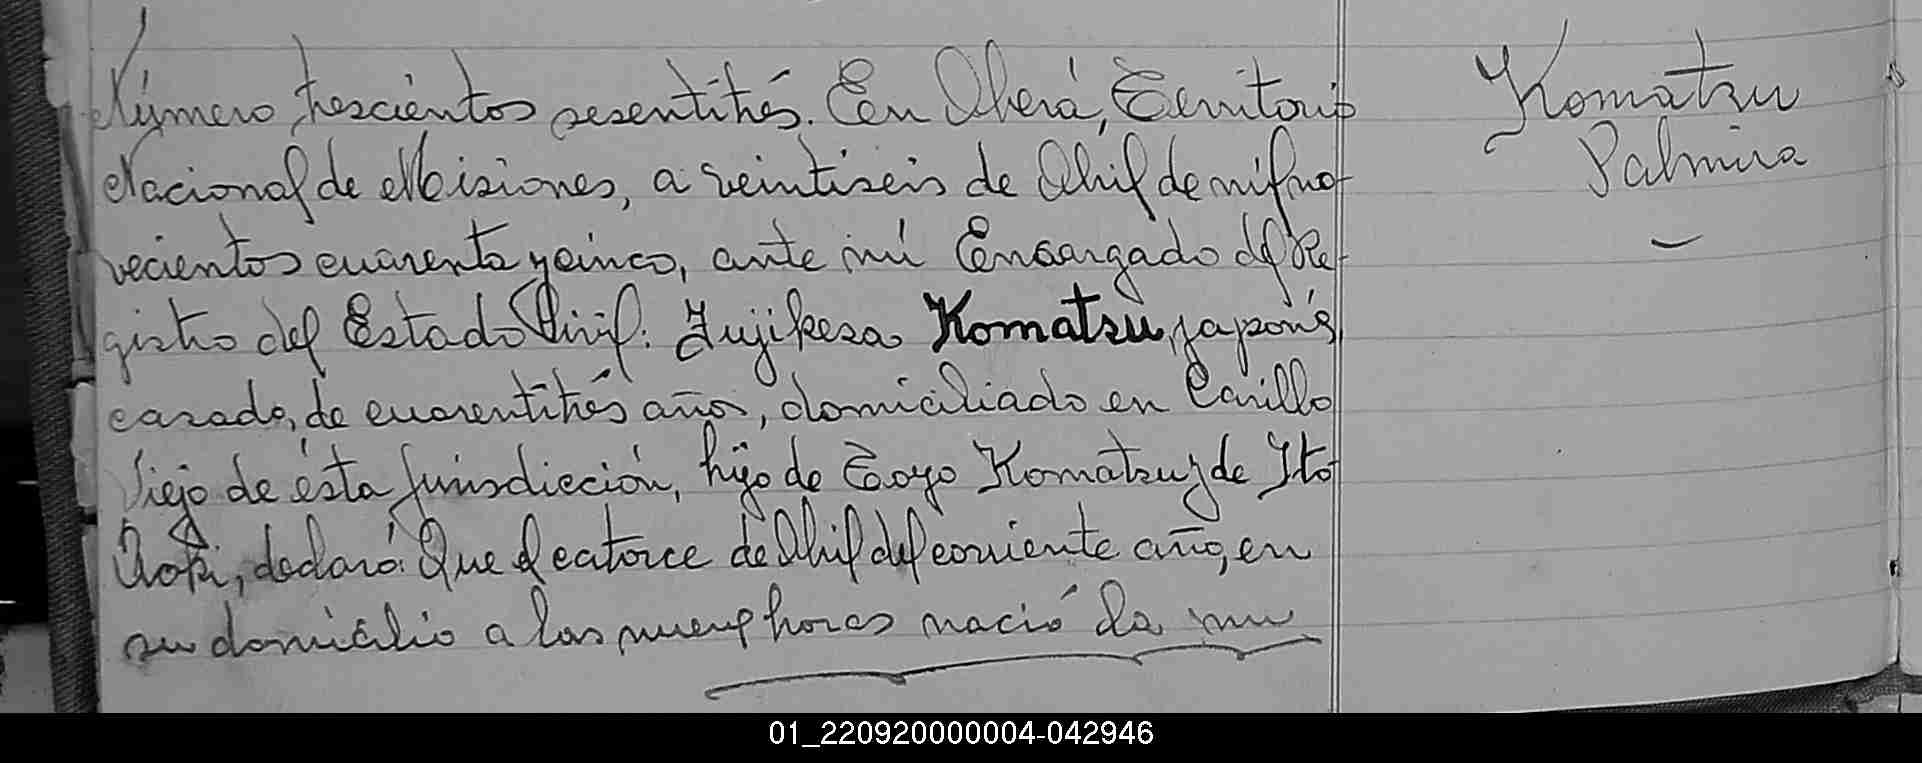 Número trescientos sesentitrés. En Oberá, Territorio
Nacional de Misiones, a veintiseis de Abril de mil no-
vecientos cuarenta y cinco, ante mí Encargado del Re-
gistro del Estado Civil: Fujikesa Komatsu, japonés,
casado, de cuarentitrés años, domiciliado en Cerillo
Viejo de ésta jurisdicción, hijo de Toyo Komatzu y de Ito
Aoki, declaró: Que el catorce de Abril del corriente año, en
su domicilio a las nueve horas nació la mu
Komatzu
Palmira
01_220920000004-042946